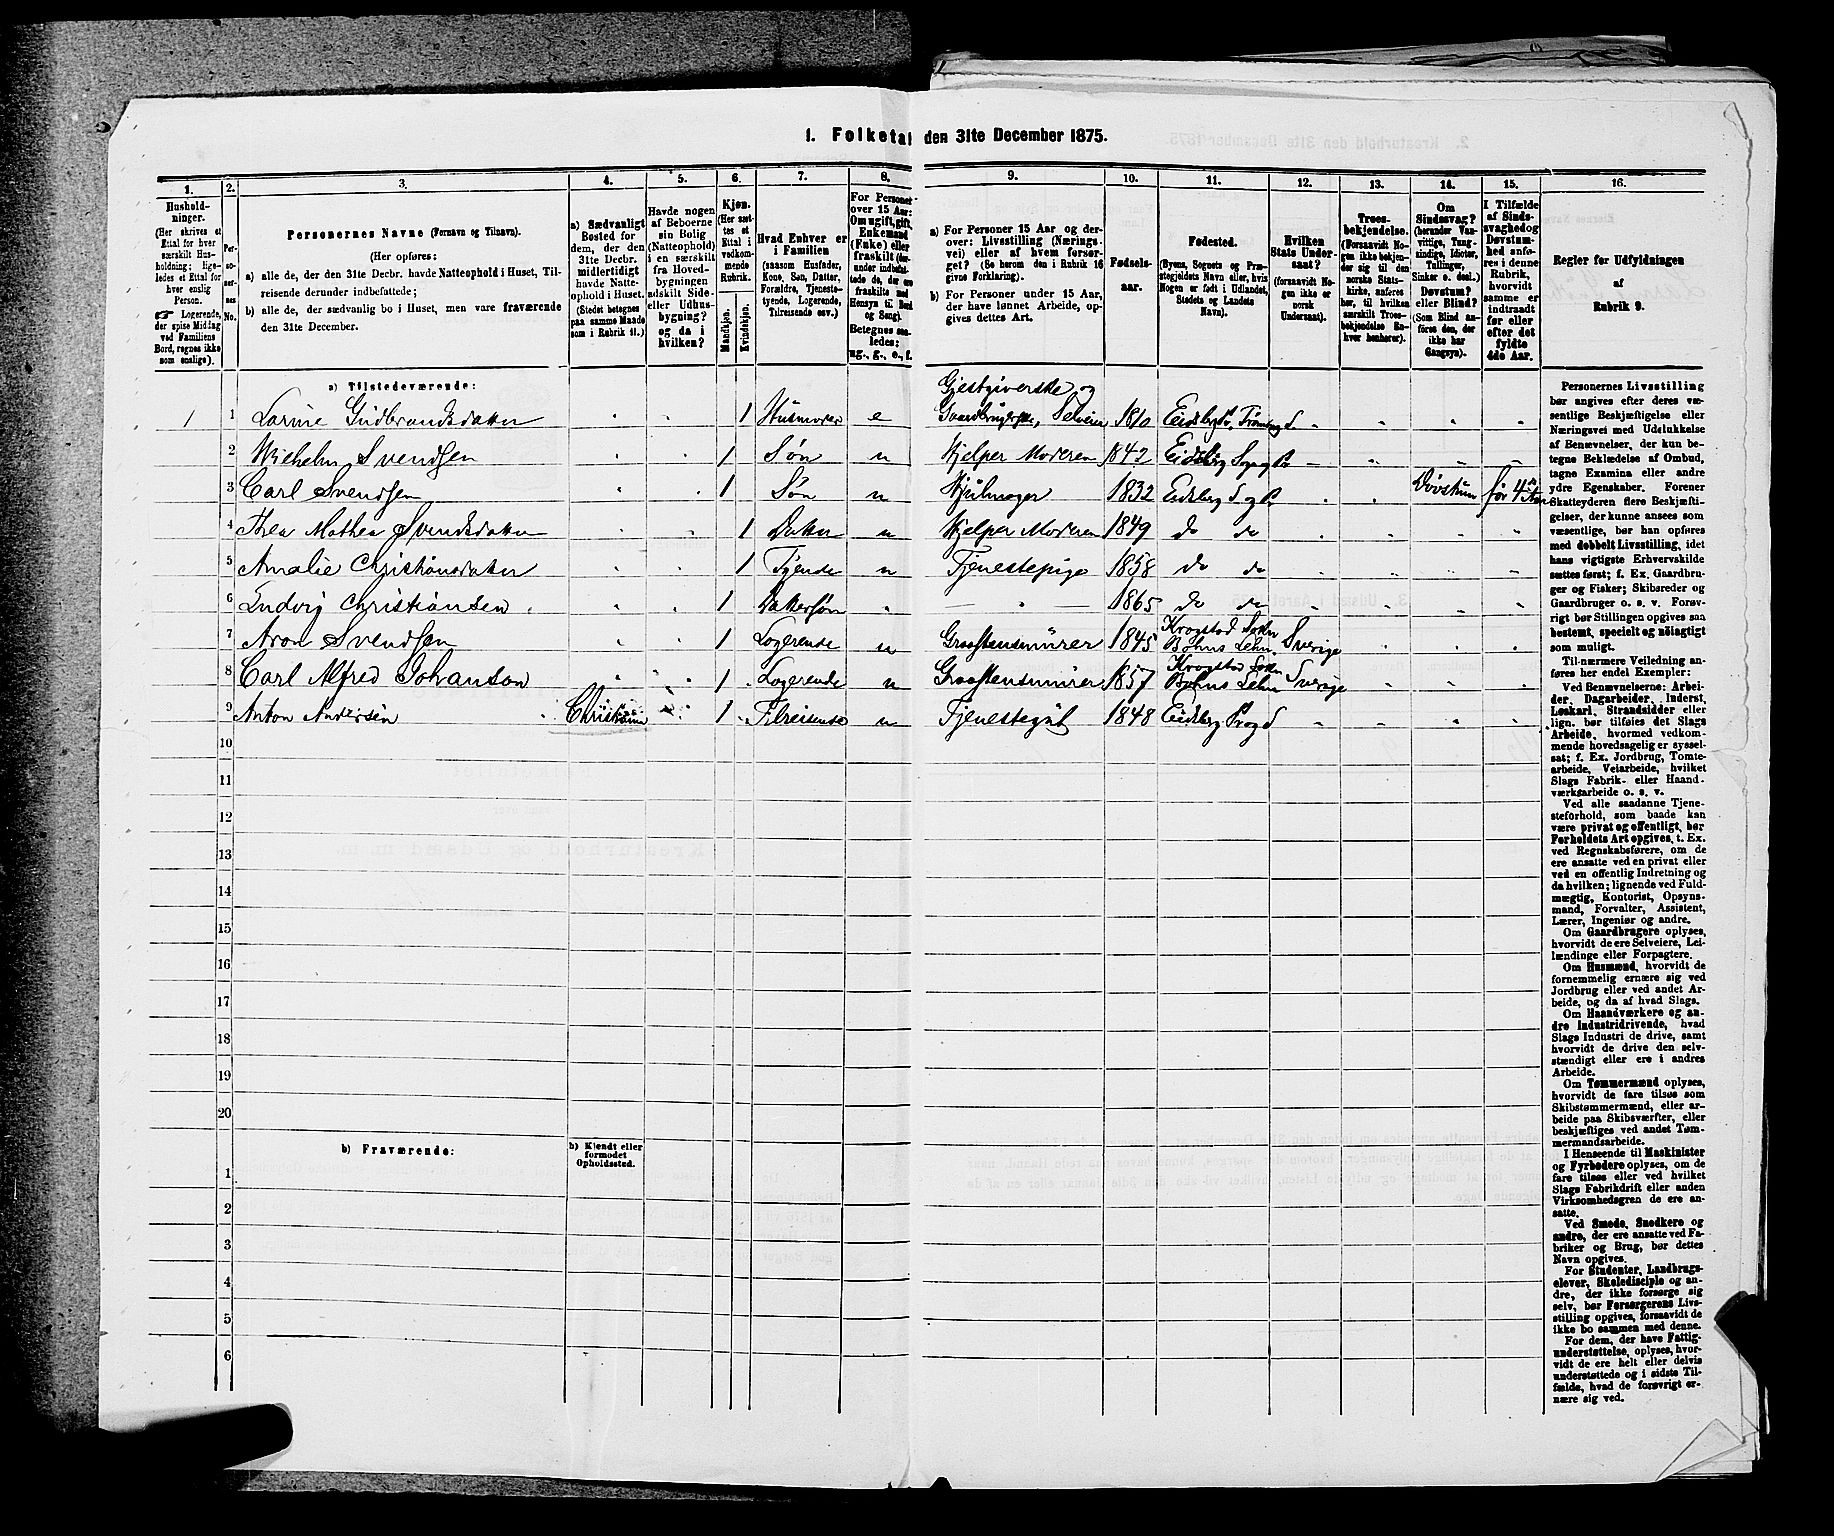 1. Folketal den 31te December 1875.
1. 2. 3. 4. 5. 6. 7. 8. 9. 10. 11. 12. 13. 14. 15. 16.
Hushold-
ninger.
(Her skrives et
Ettal for hver
særskilt Hus-
holdning; lige-
ledes et Ettal for
hver enslig
Person.
☞ Logerende,
der spise Middag
ved Familiens
Bord, regnes ikke
som enslige).
Per-
so-
ner-
nes
No.
Personernes Navne (Fornavn og Tilnavn).
(Her opføres:
a) alle de, der den 31te Decbr. havde Natteophold i Huset, Til-
reisende derunder indbefattede;
b) alle de, der sædvanlig bo i Huset, men vare fraværende
den 31te December.
a) Sædvanligt
Bosted for
dem, der den
31te Decbr.
midlertidigt
havde Natte-
ophold i Huset.
(Stedet betegnes
paa samme Maade
som i Rubrik 11.)
Havde nogen
af Beboerne
sin Bolig
(Natteophold)
i en særskilt
fra Hoved-
bygningen
adskilt Side-
eller Udhus-
bygning?
og da i
hvilken?
Kjøn.
(Her sæt-
tes et
Ettal i
vedkom-
mende
Rubrik.
Mandkjøn.
Kvindekjøn.
Hvad Enhver er
i Familien
(saasom Husfader,
Kone, Søn, Datter,
Forældre, Tjeneste-
tyende, Logerende,
Tilreisende osv.)
For Personer
over 15 Aar:
Om ugift, gift,
Enkemand
(Enke) eller
fraskilt (der-
under indbefat-
tede de, der ere
fraskilte med
Hensyn til Bord
og Seng).
Betegnes saa-
ledes:
ug., g., e., f.
a) For Personer 15 Aar og der-
over: Livsstilling (Nærings-
vei) eller af hvem forsør-
get? (Se herom den i Rubrik 16
givne Forklaring).
b) For Personer under 15 Aar,
der have lønnet Arbeide, op-
gives dettes Art.
Fødsels-
aar.
Fødested.
(Byens, Sognets og Præ-
stegjeldets Navn eller, hvis
Nogen er født i Udlandet,
Stedets og Landets
Navn).
Hvilken
Stats Under-
saat?
(forsaavidt No-
gen ikke er
norsk
Undersaat).
Troes-
bekjendelse.
(Forsaavidt No-
gen ikke bekjen-
der sig til den
norske Stats-
kirke, anføres
her, til hvilken
særskilt Troes-
bekjendelse En-
hver henhører).
Om
Sindssvag?
(herunder Van-
vittige, Tung-
sindige, Idioter,
Tullinger,
Sinker o. desl.)
Døvstum?
eller Blind?
(Som Blind an-
føres den, der
ikke har
Gangsyn).
I Tilfælde
af Sinds-
svaghed og
Døvstum-
hed anfø-
res i denne
Rubrik,
hvorvidt
samme er
indtraadt
før eller
efter det
fyldte
4de Aar.
Regler for Udfyldningen
af
Rubrik 9.
a) Tilstedeværende:
1 1 Lorine Gudbrandsdatter 1 Husmoder e Gjestgiverske og Gaardbrugerske, Selveier 1810
2 Wilhelm Svendsen 1 Søn u Hjelper Moderen 1842 Eidsberg
3 Carl Svendsen 1 Søn u Hjulmager 1832 Eidsberg Døvstum før 4de Aar
4 Thea Mathea Svendsdatter 1 Datter u Hjelper Moderen 1849 do do
5 Amalie Christiansdatter 1 Tyende u Tjenestepige 1858 do do
6 Ludvig Christiansen 1 Dattersøn 1865 do do
7 Aron Svendsen 1 Logerende u Graastensmurer 1845 Krogstad Sokn Bohus Lehn Sverige
8 Carl Alfred Johanson 1 Logerende u Graastensmurer 1857 Krogstad Sokn Bohus Lehn Sverige
9 Anton Andersen 1 Tilreisende u Tjenestegut 1848 Eidsberg
10
11
12
13
14
15
16
17
18
19
20
b) Fraværende:
b) Kjendt eller
formodet
Opholdssted.
1
2
3
4
5
6
Personernes Livsstilling
bør angives efter deres væ-
sentlige Beskjæftigelse eller
Næringsvei med Udelukkelse
af Benævnelser, der kun be-
tegne Beklædelse af Ombud,
tagne Examina eller andre
ydre Egenskaber. Forener
Skatteyderen flere Beskjæfti-
gelser, der kunne ansees som
væsentlige, bør han opføres
med dobbelt Livsstilling, idet
hans vigtigste Erhvervskilde
sættes først; f. Ex. Gaardbru-
ger og Fisker; Skibsreder og
Gaardbruger o. s. v. Forøv-
rigt bør Stillingen opgives saa
bestemt, specielt og nøiagtigt
som muligt.
Til nærmere Veiledning an-
føres her endel Exempler:
Ved Benævnelserne: Arbei-
der, Dagarbeider, Inderst,
Løskarl, Strandsidder eller
lign. bør tilføies det Slags
Arbeide, hvormed vedkom-
mende hovedsagelig er syssel-
sat; f. Ex. Jordbrug, Tomte-
arbeide, Veiarbeide, hvilket
Slags Fabrik- eller Haand-
værksarbeide o. s. v.
Ved alle saadanne Tjene-
steforhold, som baade kan
være privat og offentligt, bør
Forholdets Art opgives, t. Ex.
ved Regnskabsførere, om de
ere ansatte ved en privat eller
ved en offentlig Indretning og
da hvilken; lignende ved Fuld-
mægtig, Kontorist, Opsyns-
mand, Forvalter, Assistent,
Lærer, Ingeniør og andre.
Om Gaardbrugere oplyses,
hvorvidt de ere Selveiere, Lei-
lændinge eller Forpagtere.
Om Husmænd, hvorvidt de
fornemmelig ernære sig ved
Jordbrug eller ved andet Ar-
beide, og da af hvad Slags.
Om Haandværkere og an-
dre Industridrivende, hvad
Slags Industri de drive, samt
hvorvidt de drive den selv-
stændigt eller ere i andres
Arbeide.
Om Tømmermænd oplyses,
hvorvidt de fare tilsøs som
Skibstømmermænd, eller ar-
beide paa Skibsværfter, eller
beskjæftiges ved andet Tøm-
mermandsarbeide.
I Henseende til Maskinister
og Fyrbødere oplyses, om de
fare tilsøs eller ved hvilket
Slags Fabrikdrift eller anden
Virksomhedsgren de ere an-
satte.
Ved Smede, Snedkere og
andre, der ere ansatte ved Fa-
briker og Brug, bør dettes
Navn opgives.
For Studenter, Landbrugs-
elever, Skoledisciple og an-
dre, der ikke forsørge sig
selv, bør Forsørgerens Livs-
stilling opgives, forsaavidt de
ikke bo sammen med denne.
For dem, der have Fattig-
understøttelse, oplyses, hvor-
vidt de ere helt eller delvis
understøttede og i sidste Til-
fælde, hvad de forøvrigt er-
nære sig ved.